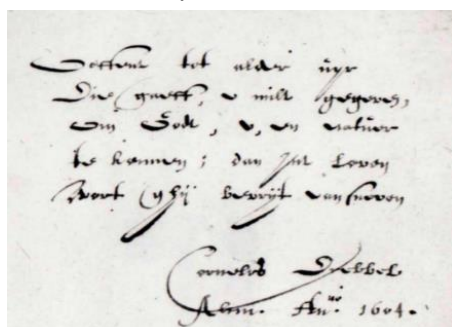 Oeffent tot alder uyr
Die gaeff, u milt gegeven,
Om Godt, u, en natuer
te kennen; dan int leven
Wort ghij bevrijt van sneven
Cornelis Drebbel
Alcm. Anno 1604.